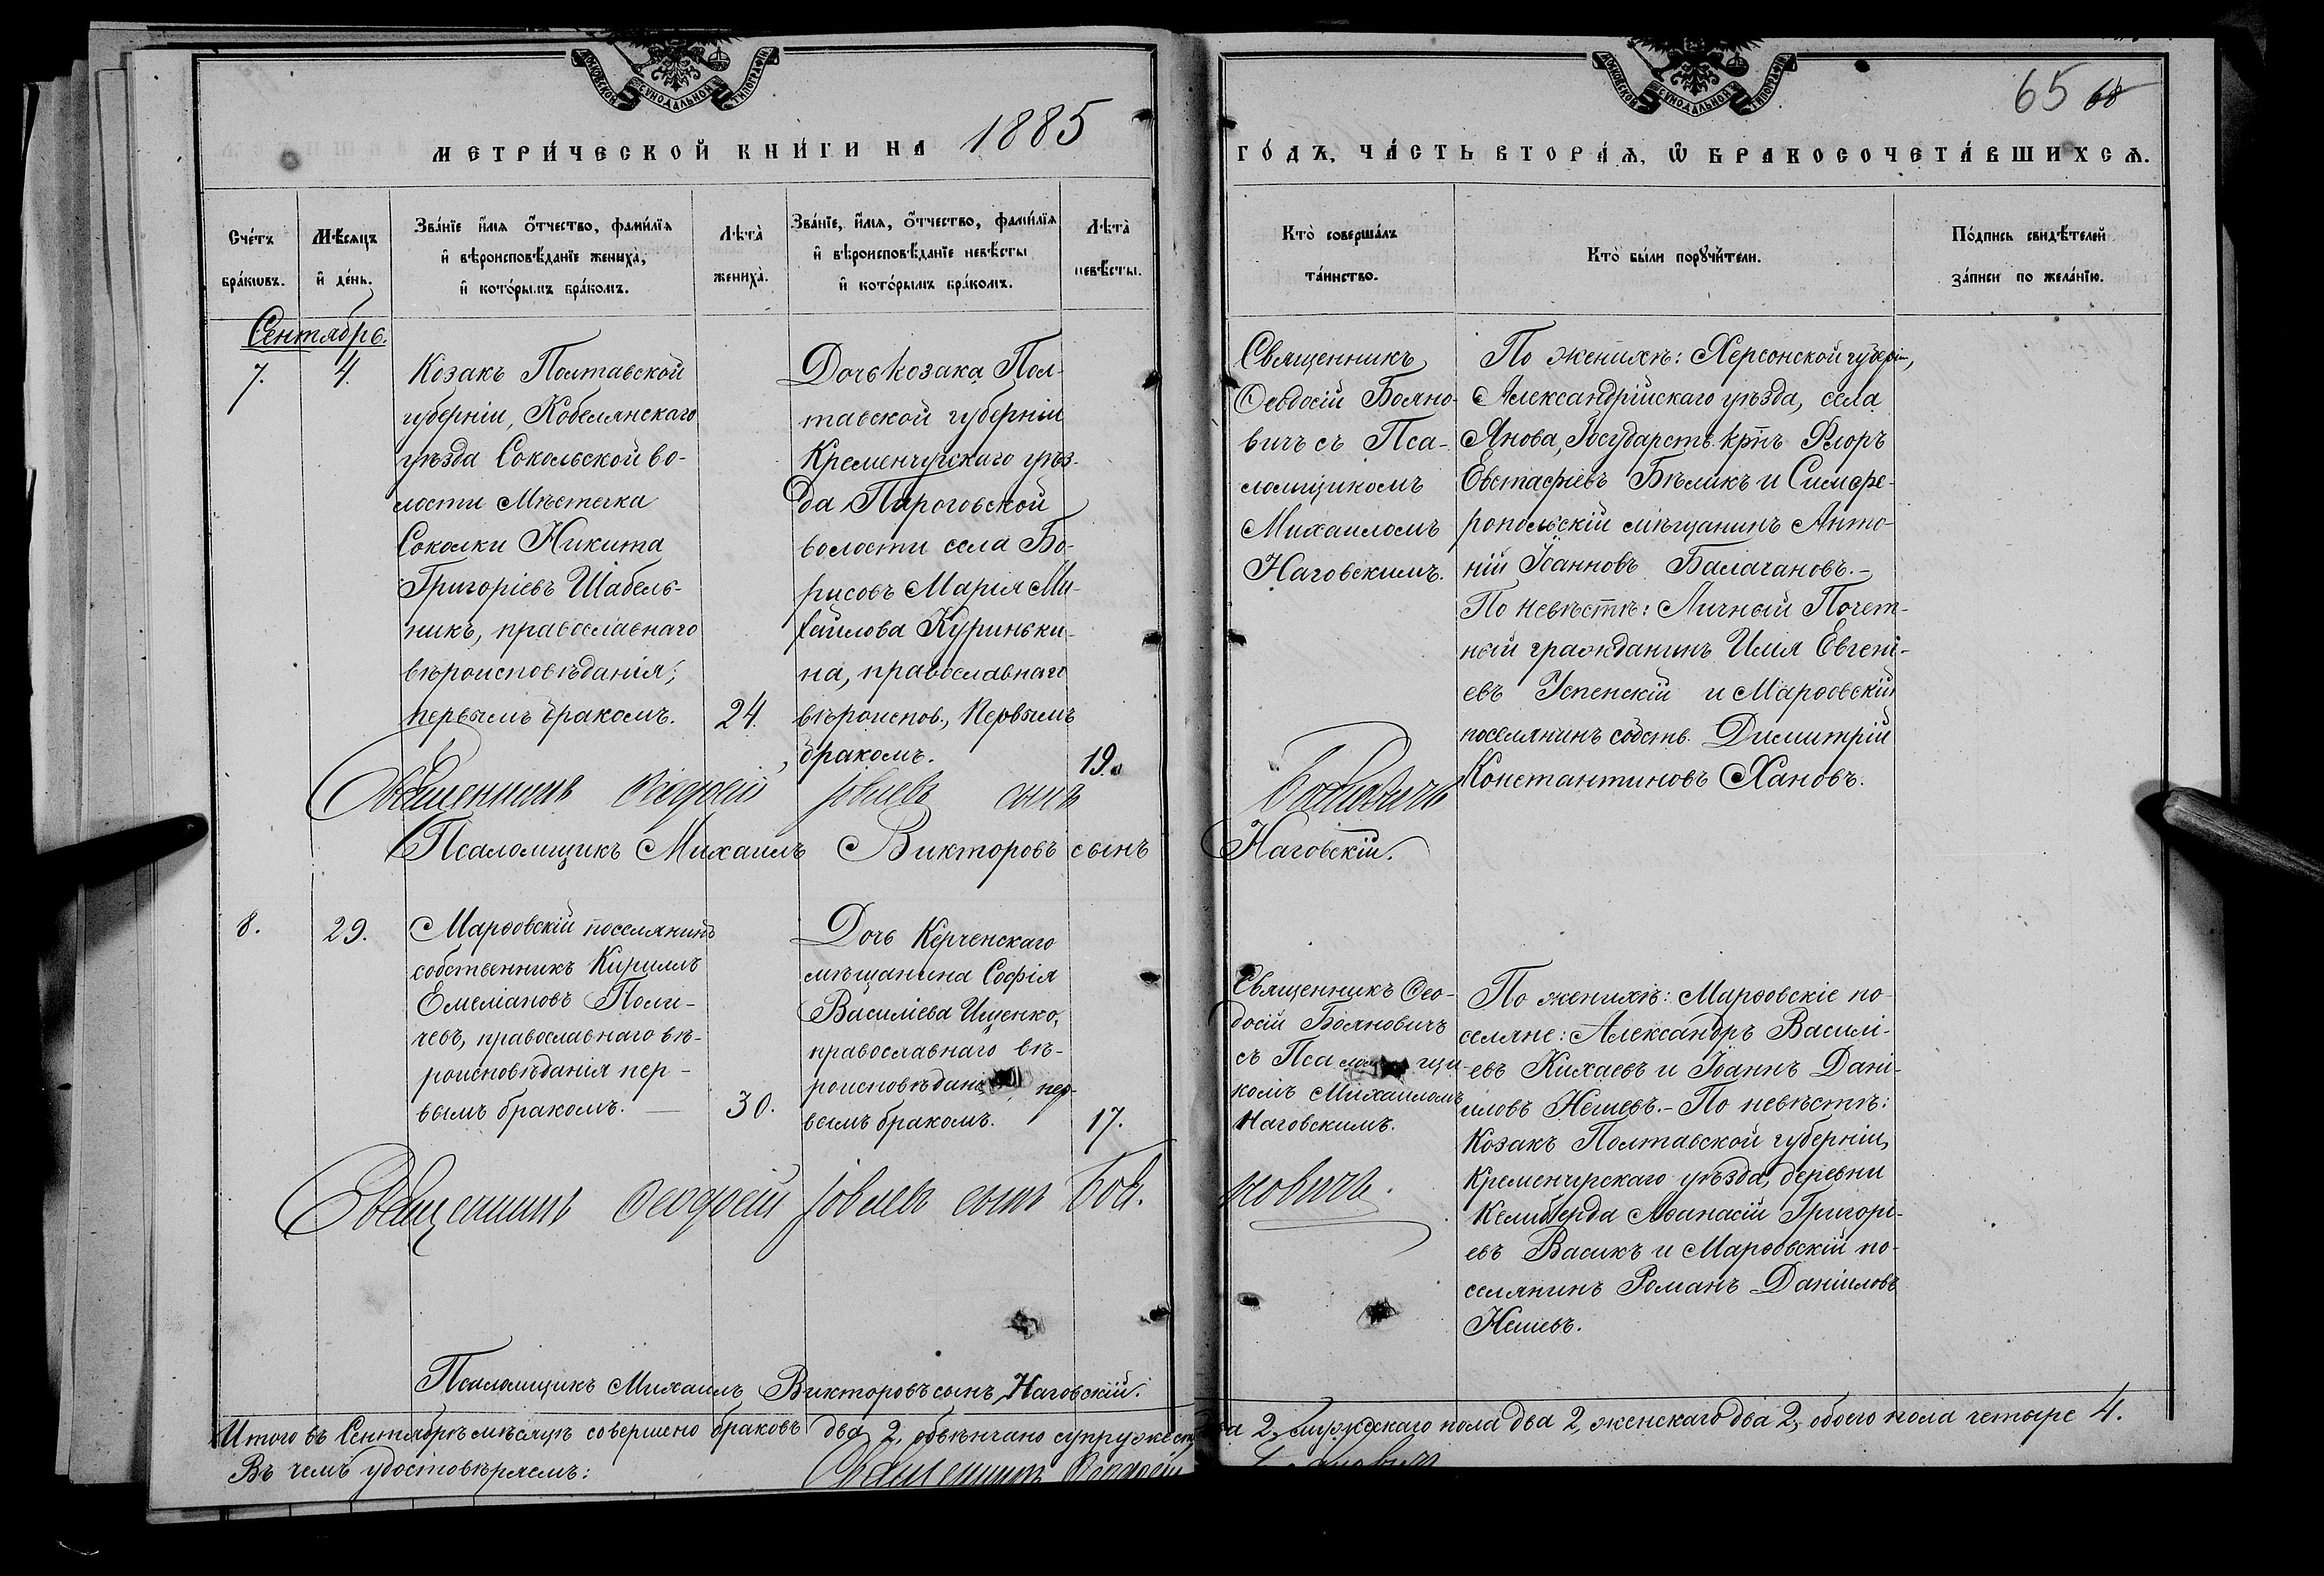 МОСКОВСКОЙ СѴНОДАЛЬНОЙ ТИПОГРАФІИ
МОСКОВСКОЙ СѴНОДАЛЬНОЙ ТИПОГРАФІИ
65 68
МЕТРИ́ЧЕСКОЙ КНИ́ГИ НА 1885
ГО́ДЪ, ЧА́СТЬ ВТОРА́Я, Ѡ БРАКОСОЧЕТА́ВШИХСЯ.
Сче́тъ
бра́ковъ.
Мѣ́сяцъ
и де́нь.
Зва́нїе и́мя о́тчество, фами́лїя
и вѣроисповѣ́данїе жениха̀,
и кото́рымъ бра́комъ.
Лѣта̀
жениха̀.
Зва́нїе, и́мя, о́тчество, фами́лїя
и вѣроисповѣ́данїе невѣ́сты
и кото́рымъ бра́комъ.
Лѣта̀
невѣ́сты.
Кто̀ соверша́лъ
та́инство.
Кто̀ бы́ли порꙋчи́тели.
По́дпись свидѣ́телей
за́писи по жела́нїю.
Сентябрь.
7.
4.
Козакъ Полтавской
губерніи, Кобелянскаго
уѣзда Сокольской во-
лости Мѣстечка
Соколки Никита
Григоріевъ Шабель-
никъ, православнаго
вѣроисповѣданія,
первымъ бракомъ.
24.
Дочь козака Пол-
тавской губерніи
Кременчугскаго уѣз-
да Пироговской
волости села Бо-
рисовъ Марія Ми-
хаилова Куриньки-
на, православнаго
вѣроиспов., Первымъ
бракомъ.
19.
Священникъ
Ѳеодосій Бояно-
вичъ съ Пса-
ломщикомъ
Михаиломъ
Наговскимъ.
По женихѣ: Херсонской губерніи,
Александрійскаго уѣзда, села
Янова, Государств. крн҃ъ Флоръ
Евстафіевъ Бѣликъ и Симфе-
ропольскій мѣщанинъ Анто-
ній Іоанновъ Балачановъ.-
По невѣстѣ: Личный Почет-
ный гражданинъ Илія Евгені-
евъ Успенскій и Марѳовскій
поселянинъ собств. Димитрій
Константиновъ Хановъ.
Священникъ Ѳеодосій Іовлевъ сынъ Бояновичъ
Псаломщикъ Михаилъ Викторовъ сынъ Наговскій.
8.
29.
Марѳовскій поселянинъ
собственникъ Кириллъ
Емеліановъ Поли-
чевъ, православнаго вѣ-
роисповѣданія пер-
вымъ бракомъ. —
30.
Дочь Керченскаго
мѣщанина Софія
Василіева Ищенко,
православнаго вѣ-
роисповѣдан пер-
вымъ бракомъ.
17.
Священникъ Ѳео-
досій Бояновичъ
съ Псаломщи-
комъ Михаиломъ
Наговскимъ.
По женихѣ: Марѳовскіе по-
селяне: Александръ Василі-
евъ Кихаевъ и Іоаннъ Дані-
иловъ Нешевъ.- По невѣстѣ:
Козакъ Полтавской губерніи,
Кременчугскаго уѣзда, деревни
Келиберда Аѳанасій Григорі-
евъ Васикъ и Марѳовскій по-
селянинъ Романъ Даніиловъ
Нешевъ.
Священникъ Ѳеодосій Іовлевъ сынъ Боя-
новичъ.
Псаломщикъ Михаилъ Викторовъ сынъ Наговскій.
Итого въ Сентябрѣ мѣсяцѣ совершено браковъ два 2, обвѣнчано супружества 2, мужскаго пола два 2, женскаго два 2, обоего пола четыре 4.
Въ чемъ удостовѣряемъ: Священникъ Ѳеодосій Бояновичъ